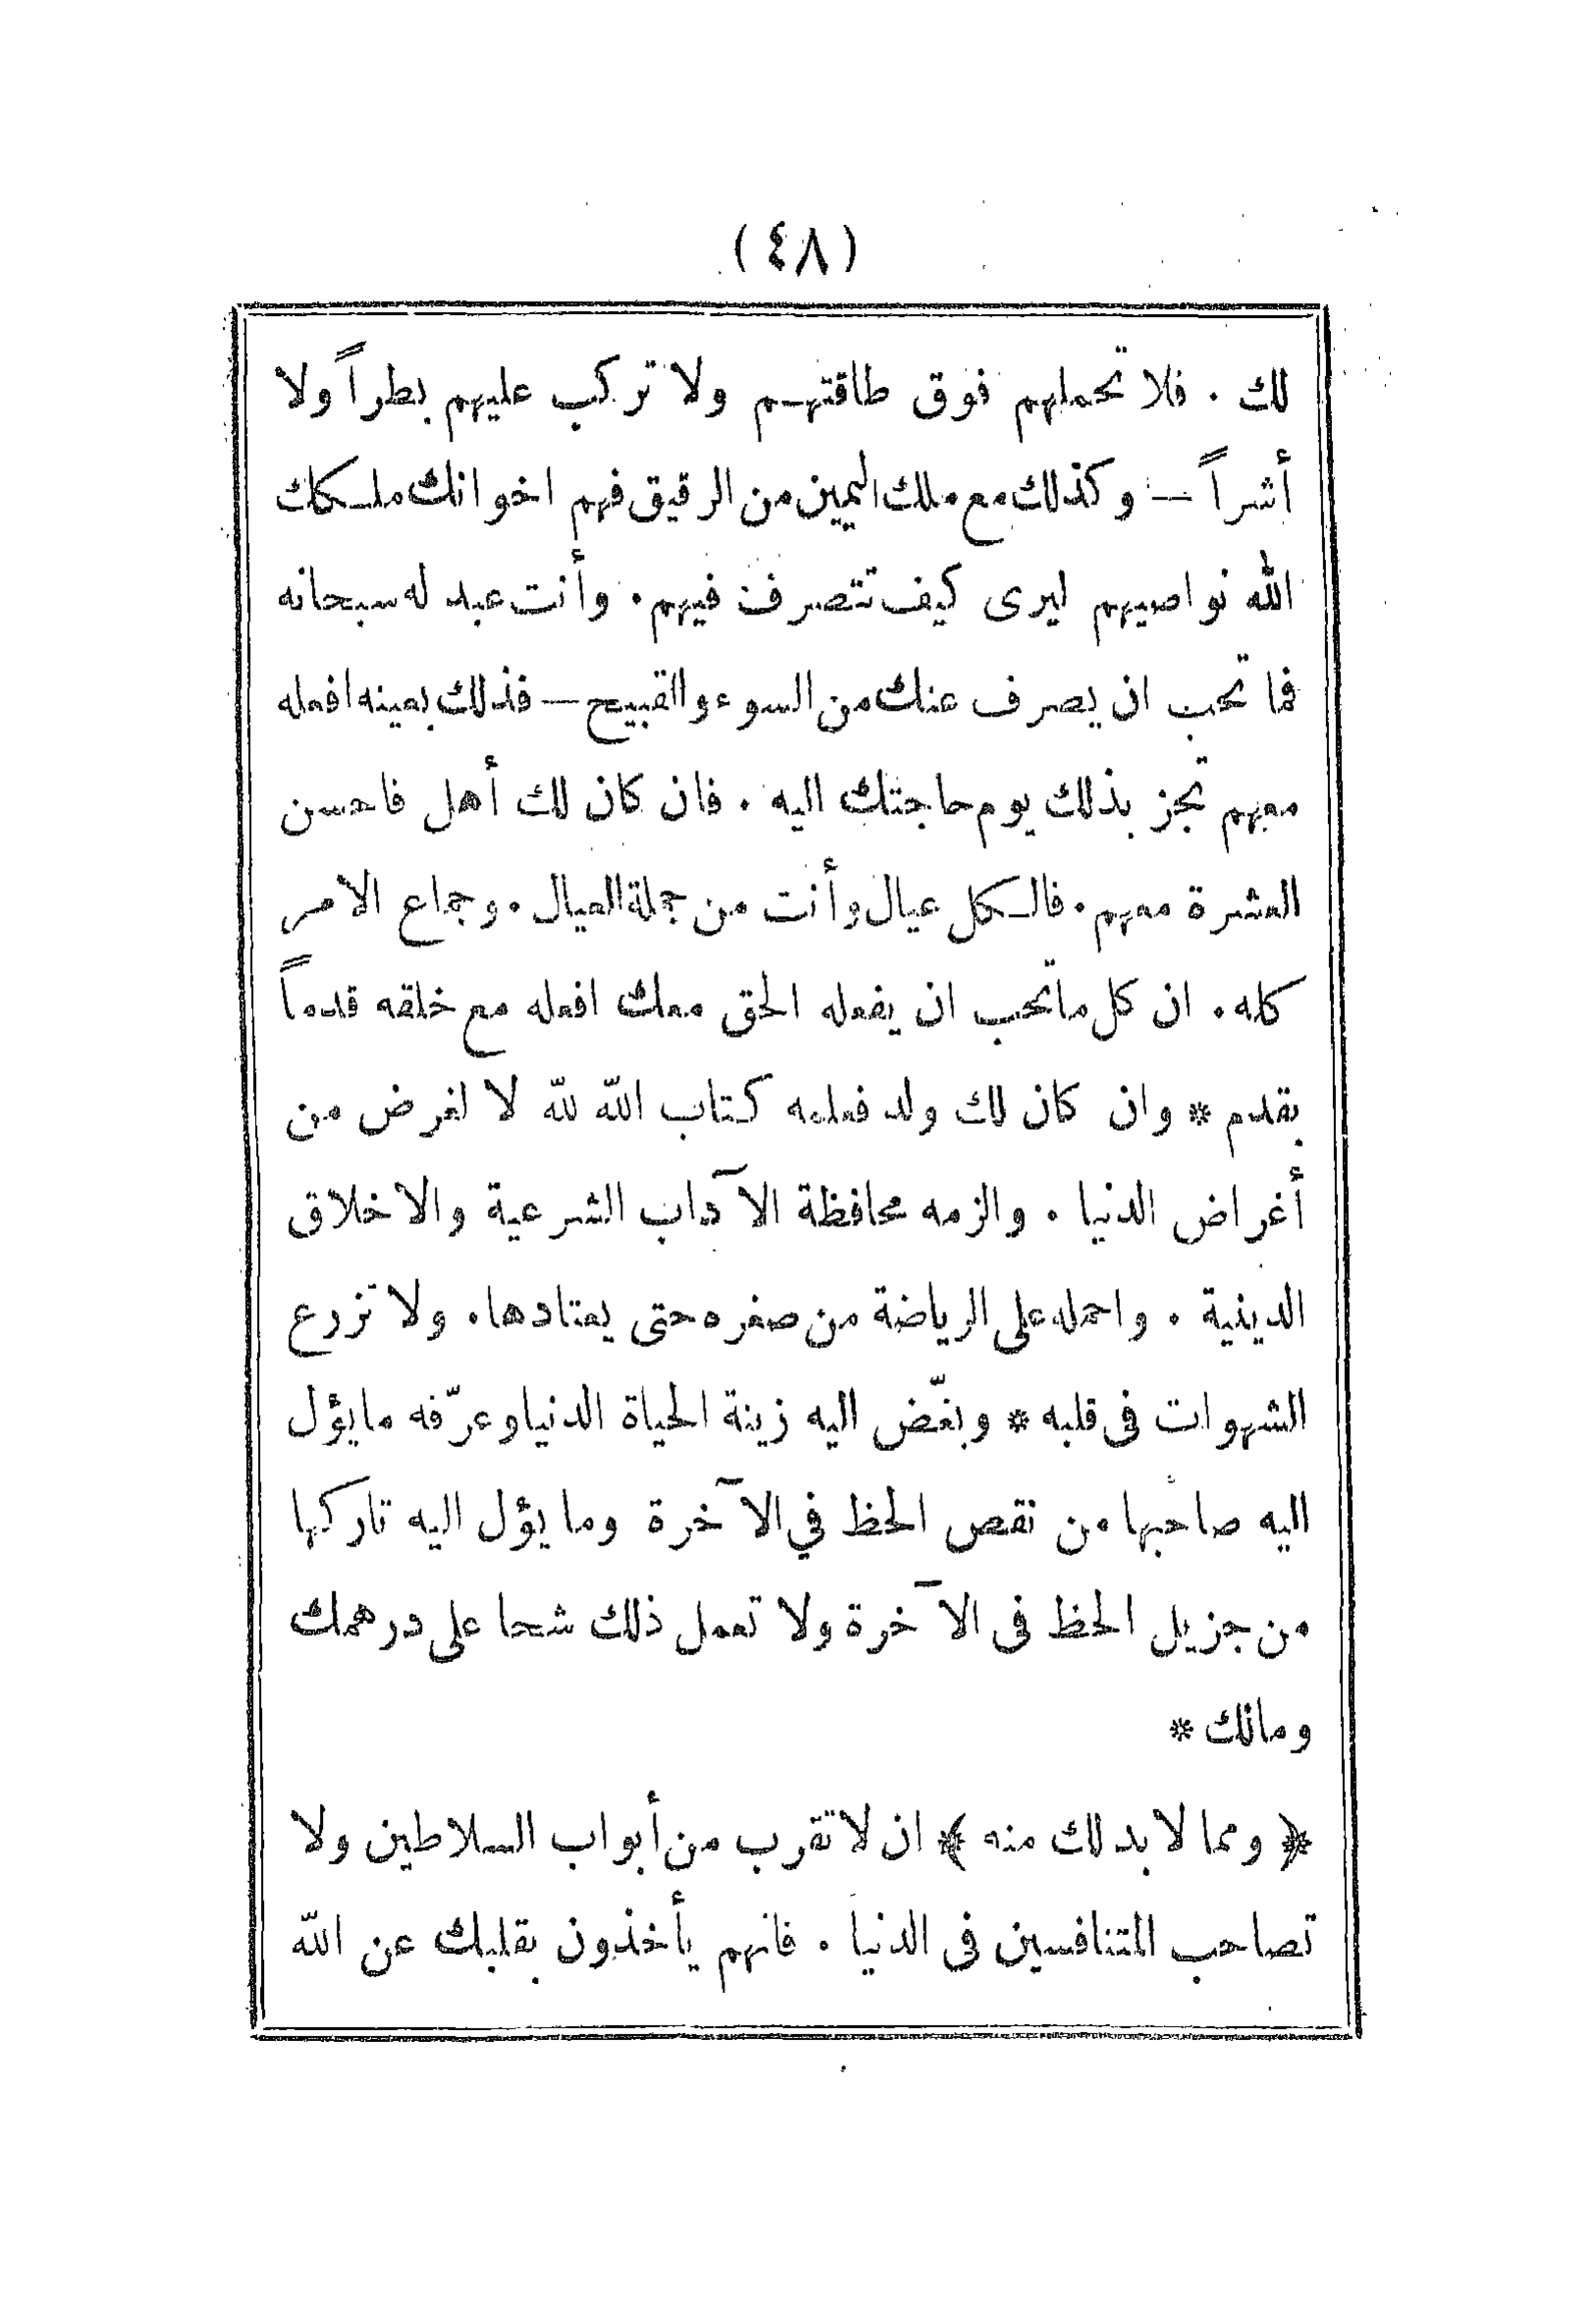 (٤٨)
لك . فلا تحملهم فوق طاقتهم ولا تركب عليهم بطراً ولا
أشراً — وكذلك مع ملك اليمين من الرقيق فهم اخوانك ملكك
الله نواصيهم ليرى كيف تتصرف فيهم. وأنت عبد له سبحانه
فما تحب ان يصرف عنك من السوء والقبيح — فذلك بعينه افعله
معهم تجز بذلك يوم حاجتك اليه . فان كان لك أهل فاحسن
العشرة معهم. فالكل عيال وأنت من جملة العيال. وجماع الامر
كله. ان كل ما تحب ان يفعله الحق معك افعله مع خلقه قدماً
بقدم * وان كان لك ولد فعلمه كتاب الله لله لا لغرض من
أغراض الدنيا . والزمه محافظة الآداب الشرعية والاخلاق
الدينية . واحمله على الرياضة من صغره حتى يعتادها. ولا تزرع
الشهوات فى قلبه * وبغّض اليه زينة الحياة الدنيا وعرّفه ما يؤل
اليه صاحبها من نقص الحظ في الآخرة وما يؤل اليه تاركها
من جزيل الحظ فى الآخرة ولا تعمل ذلك شحا على درهمك
ومالك *
﴿ ومما لا بد لك منه ﴾ ان لا تقرب من أبواب السلاطين ولا
تصاحب المتنافسين فى الدنيا . فانهم يأخذون بقلبك عن الله